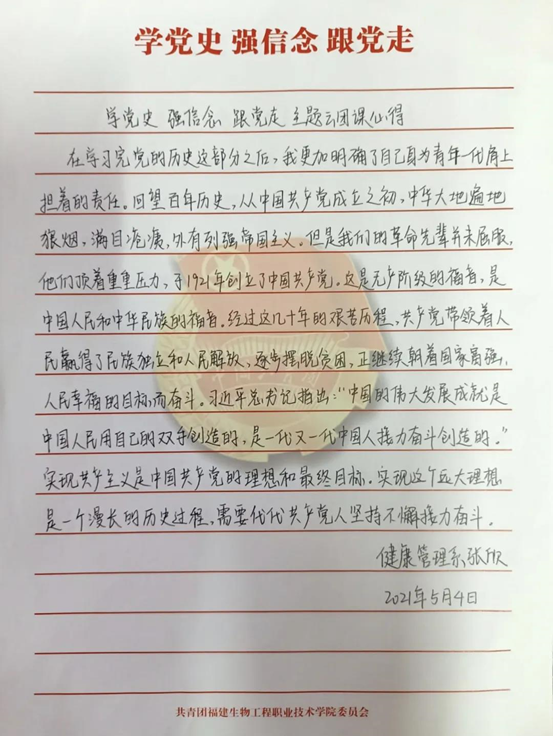 学党史 强信念 跟党走
学党史 强信念 跟党走 主题云团课心得
在学习完党的历史这部分之后，我更加明确了自己身为青年一代肩上
担着的责任。回望百年历史，从中国共产党成立之初，中华大地遍地
狼烟，满目疮痍，外有列强帝国主义。但是我们的革命先辈并未屈服，
他们顶着重重压力，于1921年创立了中国共产党。这是无产阶级的福音，是
中国人民和中华民族的福音。经过这几十年的艰苦历程，共产党带领着人
民赢得了民族独立和人民解放，逐步摆脱贫困，正继续朝着国家富强，
人民幸福的目标而奋斗。习近平总书记指出：“中国的伟大发展成就是
中国人民用自己的双手创造的，是一代又一代中国人接力奋斗创造的。”
实现共产主义是中国共产党的理想和最终目标。实现这个远大理想
是一个漫长的历史过程，需要代代共产党人坚持不懈接力奋斗。
健康管理系张欣
2021年5月4日
共青团福建生物工程职业技术学院委员会